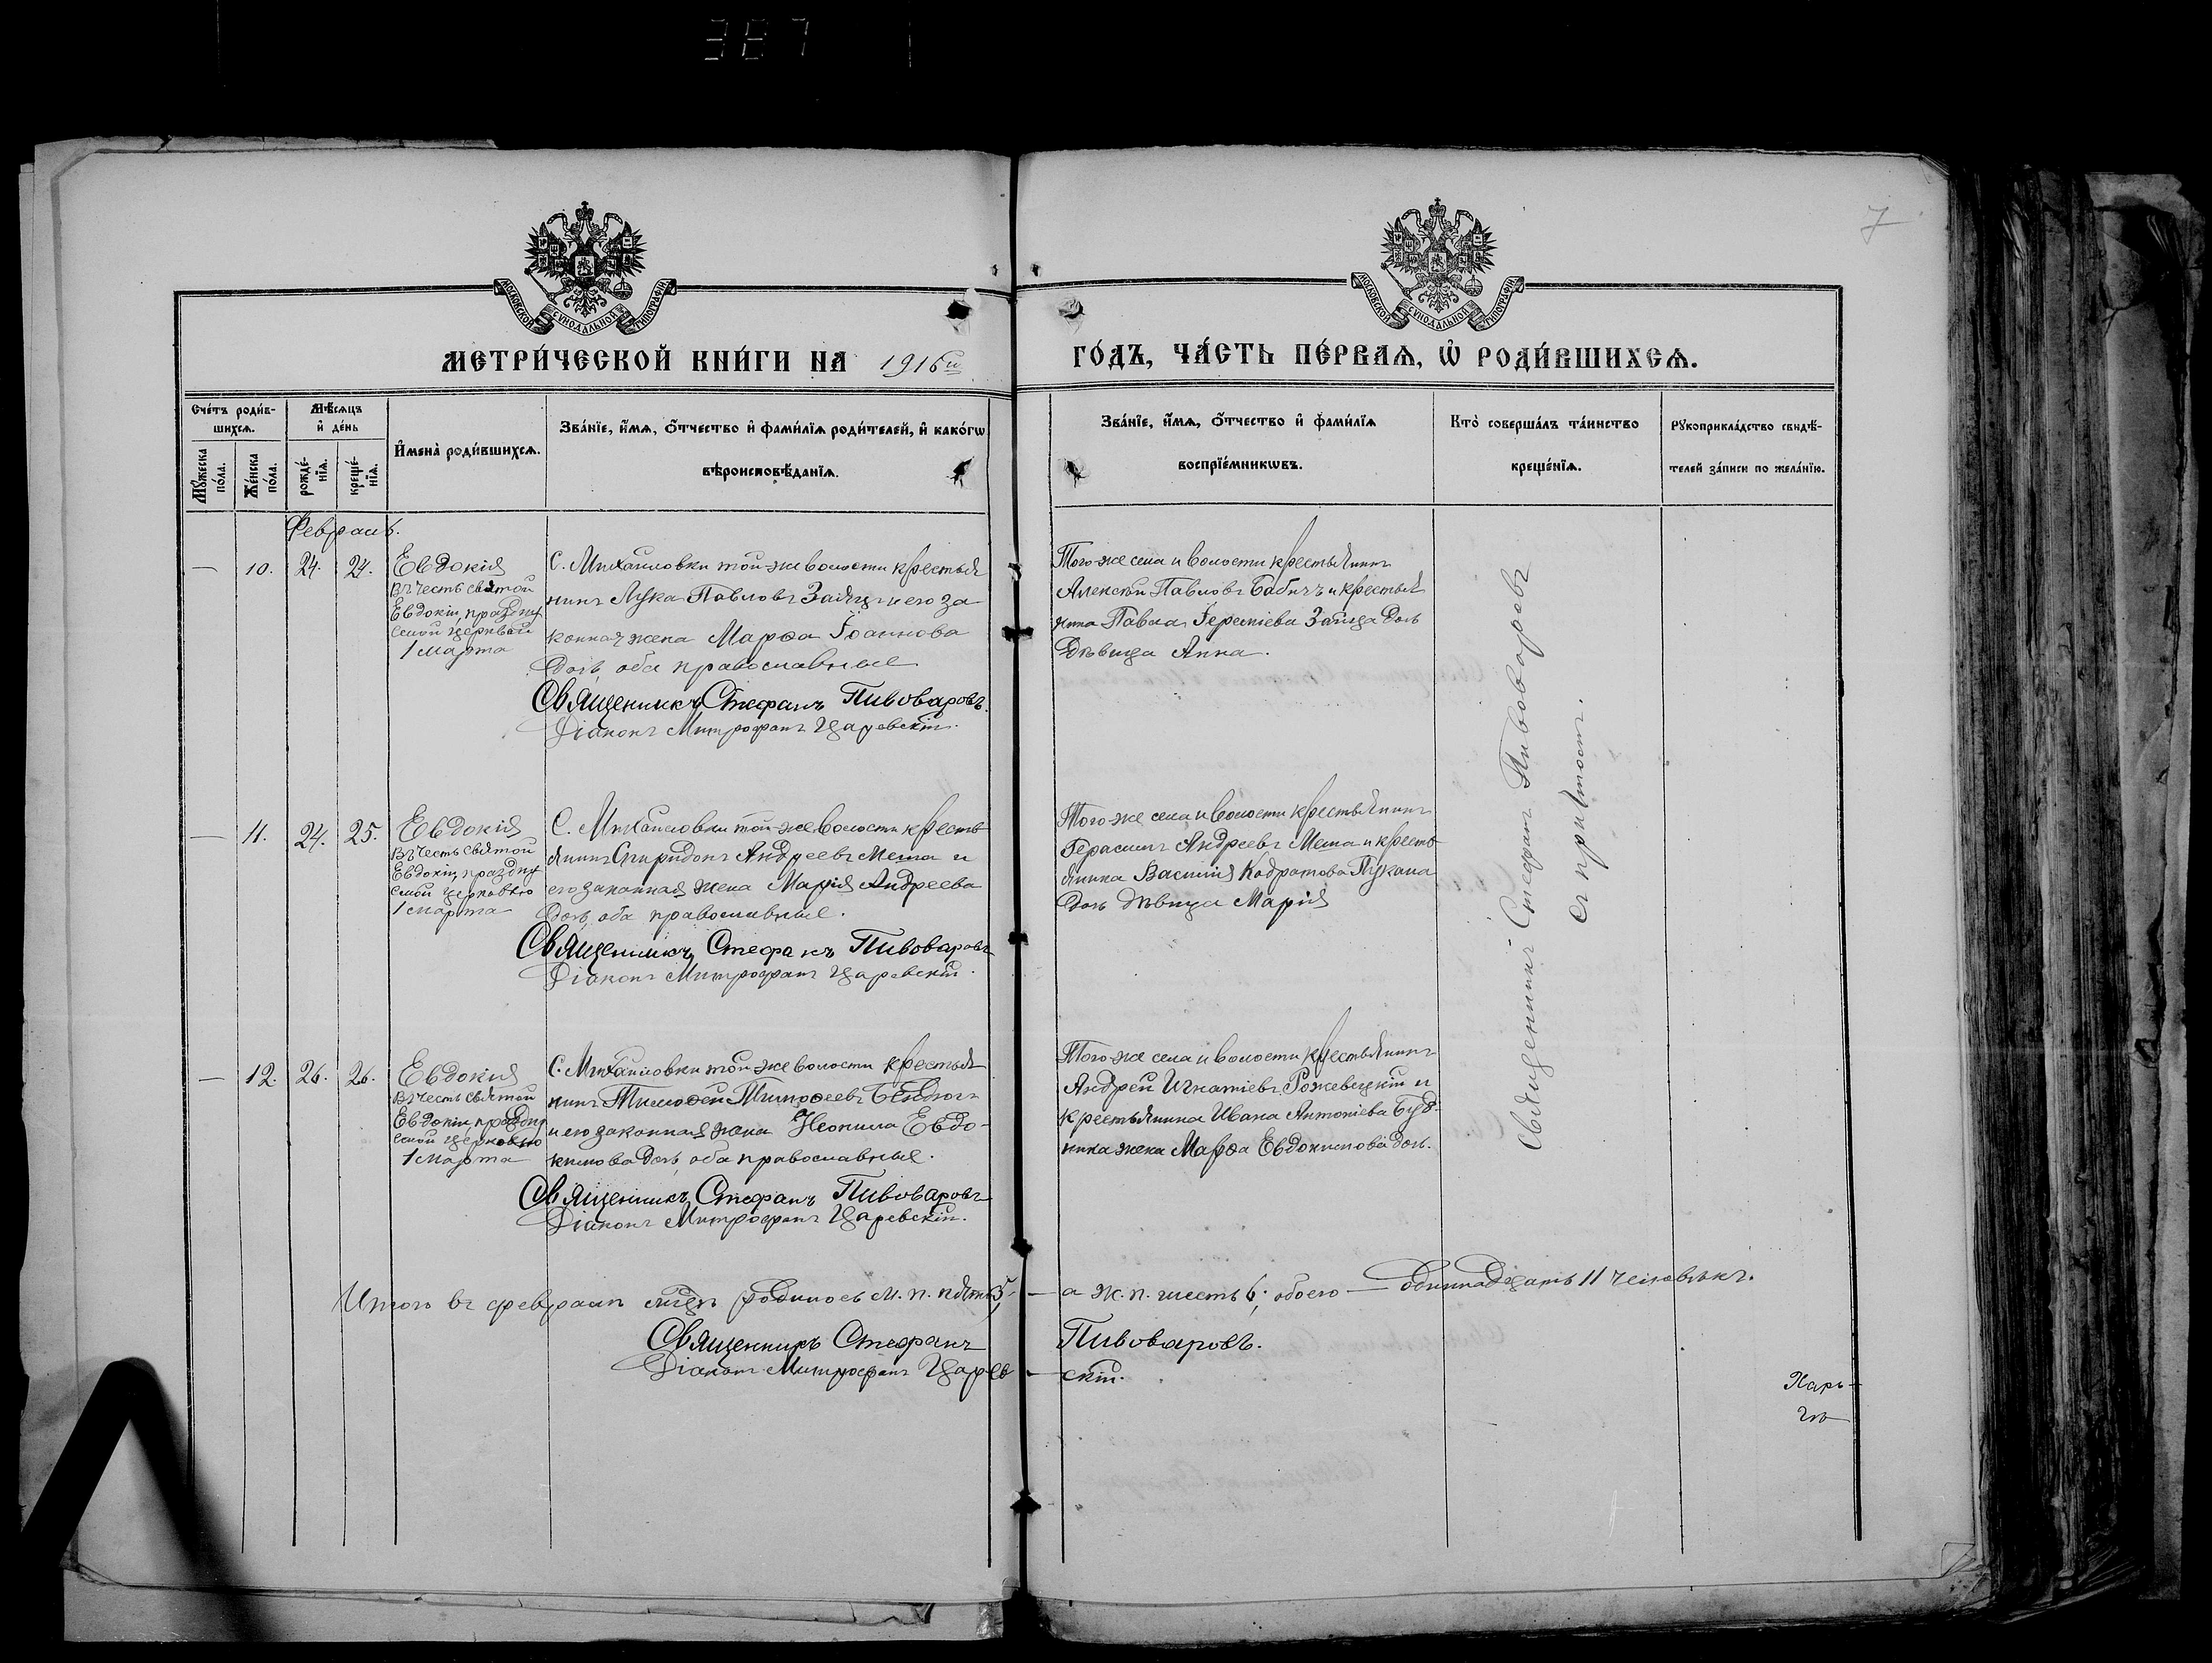 387
7
МОСКОВСКОЙ СУНОДАЛЬНОЙ ТИПОГРАФІИ
МОСКОВСКОЙ СУНОДАЛЬНОЙ ТИПОГРАФІИ
МЕТРИ́ЧЕСКОЙ КНИ́ГИ НА 1916й
ГО́ДЪ, ЧА́СТЬ ПЕ́РВАѦ, Ѡ҆ РОДИ́ВШИХСѦ.
Сче́тъ роди́в-
шихсѧ.
Мꙋ́жеска по́ла.
Же́нска по́ла.
Мѣ́сѧцъ
и҆ де́нь
рожде́-
нїѧ.
креще́-
нїѧ.
И҆мена̀ роди́вшихсѧ.
Зва́нїе, и҆́мѧ, ѻ҆́тчество и҆ фами́лїѧ роди́телей, и҆ како́гѡ
вѣроисповѣ́данїѧ.
Зва́нїе, и҆́мѧ, ѻ҆́тчество и҆ фами́лїѧ
воспрїе́мникѡвъ.
Кто̀ соверша́лъ та́инство
креще́нїѧ.
Рꙋкоприкла́дство свидѣ́-
телей за́писи по жела́нїю.
Февраль.
— 10. 24. 24.
Евдокія
въ честь святой
Евдокіи, праздну
емой церквой
1 марта
С. Михайловки той-же волости крестья
нинъ Лука Павловъ Заяцъ и его за
конная жена Марѳа Іоаннова
дочь, оба православные
Священникъ Стефанъ Пивоваровъ.
Діаконъ Митрофанъ Царевскій.
Того-же села и волости крестьянинъ
Алексѣй Павловъ Бабичъ и крестья
нина Павла Іереміева Зайца дочь
дѣвица Анна.
— 11. 24. 25.
Евдокія
въ честь святой
Евдокіи, праздну
емой церковью
1 марта
С. Михайловки той-же волости кресть
янинъ Спиридонъ Андреевъ Меша и
его законная жена Марія Андреева
дочь, оба православные.
Священникъ Стефанъ Пивоваровъ
Діаконъ Митрофанъ Царевскій.
Того-же села и волости крестьянинъ
Герасимъ Андреевъ Меша и кресть
янина Василія Кодратова Пукала
дочь дѣвица Марія
— 12. 26. 26.
Евдокія
въ честь святой
Евдокіи, праздну
емой церковью
1 марта
С. Михайловки той же волости крестья
нинъ Тимоѳей Тимоѳеевъ
и его законная жена Неонила Евдо-
кимова дочь, оба православные.
Священникъ Стефанъ Пивоваровъ
Діаконъ Митрофанъ Царевскій.
Того-же села и волости крестьянинъ
Андрей Игнатіевъ Рожевецкій и
крестьянина Ивана Антоніева Буд-
ника жена Марѳа Евдокимова дочь.
Священникъ Стефанъ Пивоваровъ
съ причтомъ.
Итого въ февралѣ мѣсяцѣ родилось м. п. пять 5, — а ж. п. шесть 6; обоего — одиннадцать 11 человѣкъ.
Священникъ Стефанъ Пивоваровъ.
Діаконъ Митрофанъ Царев — скій.
Харь-